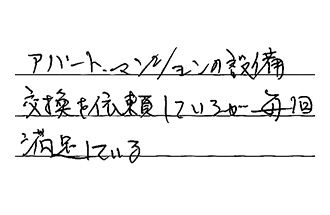 アパート、マンションの設備
交換を依頼しているが毎回
満足している